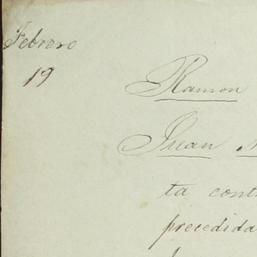 Febrero
19
Ramon
Juan
ta cont
precedida